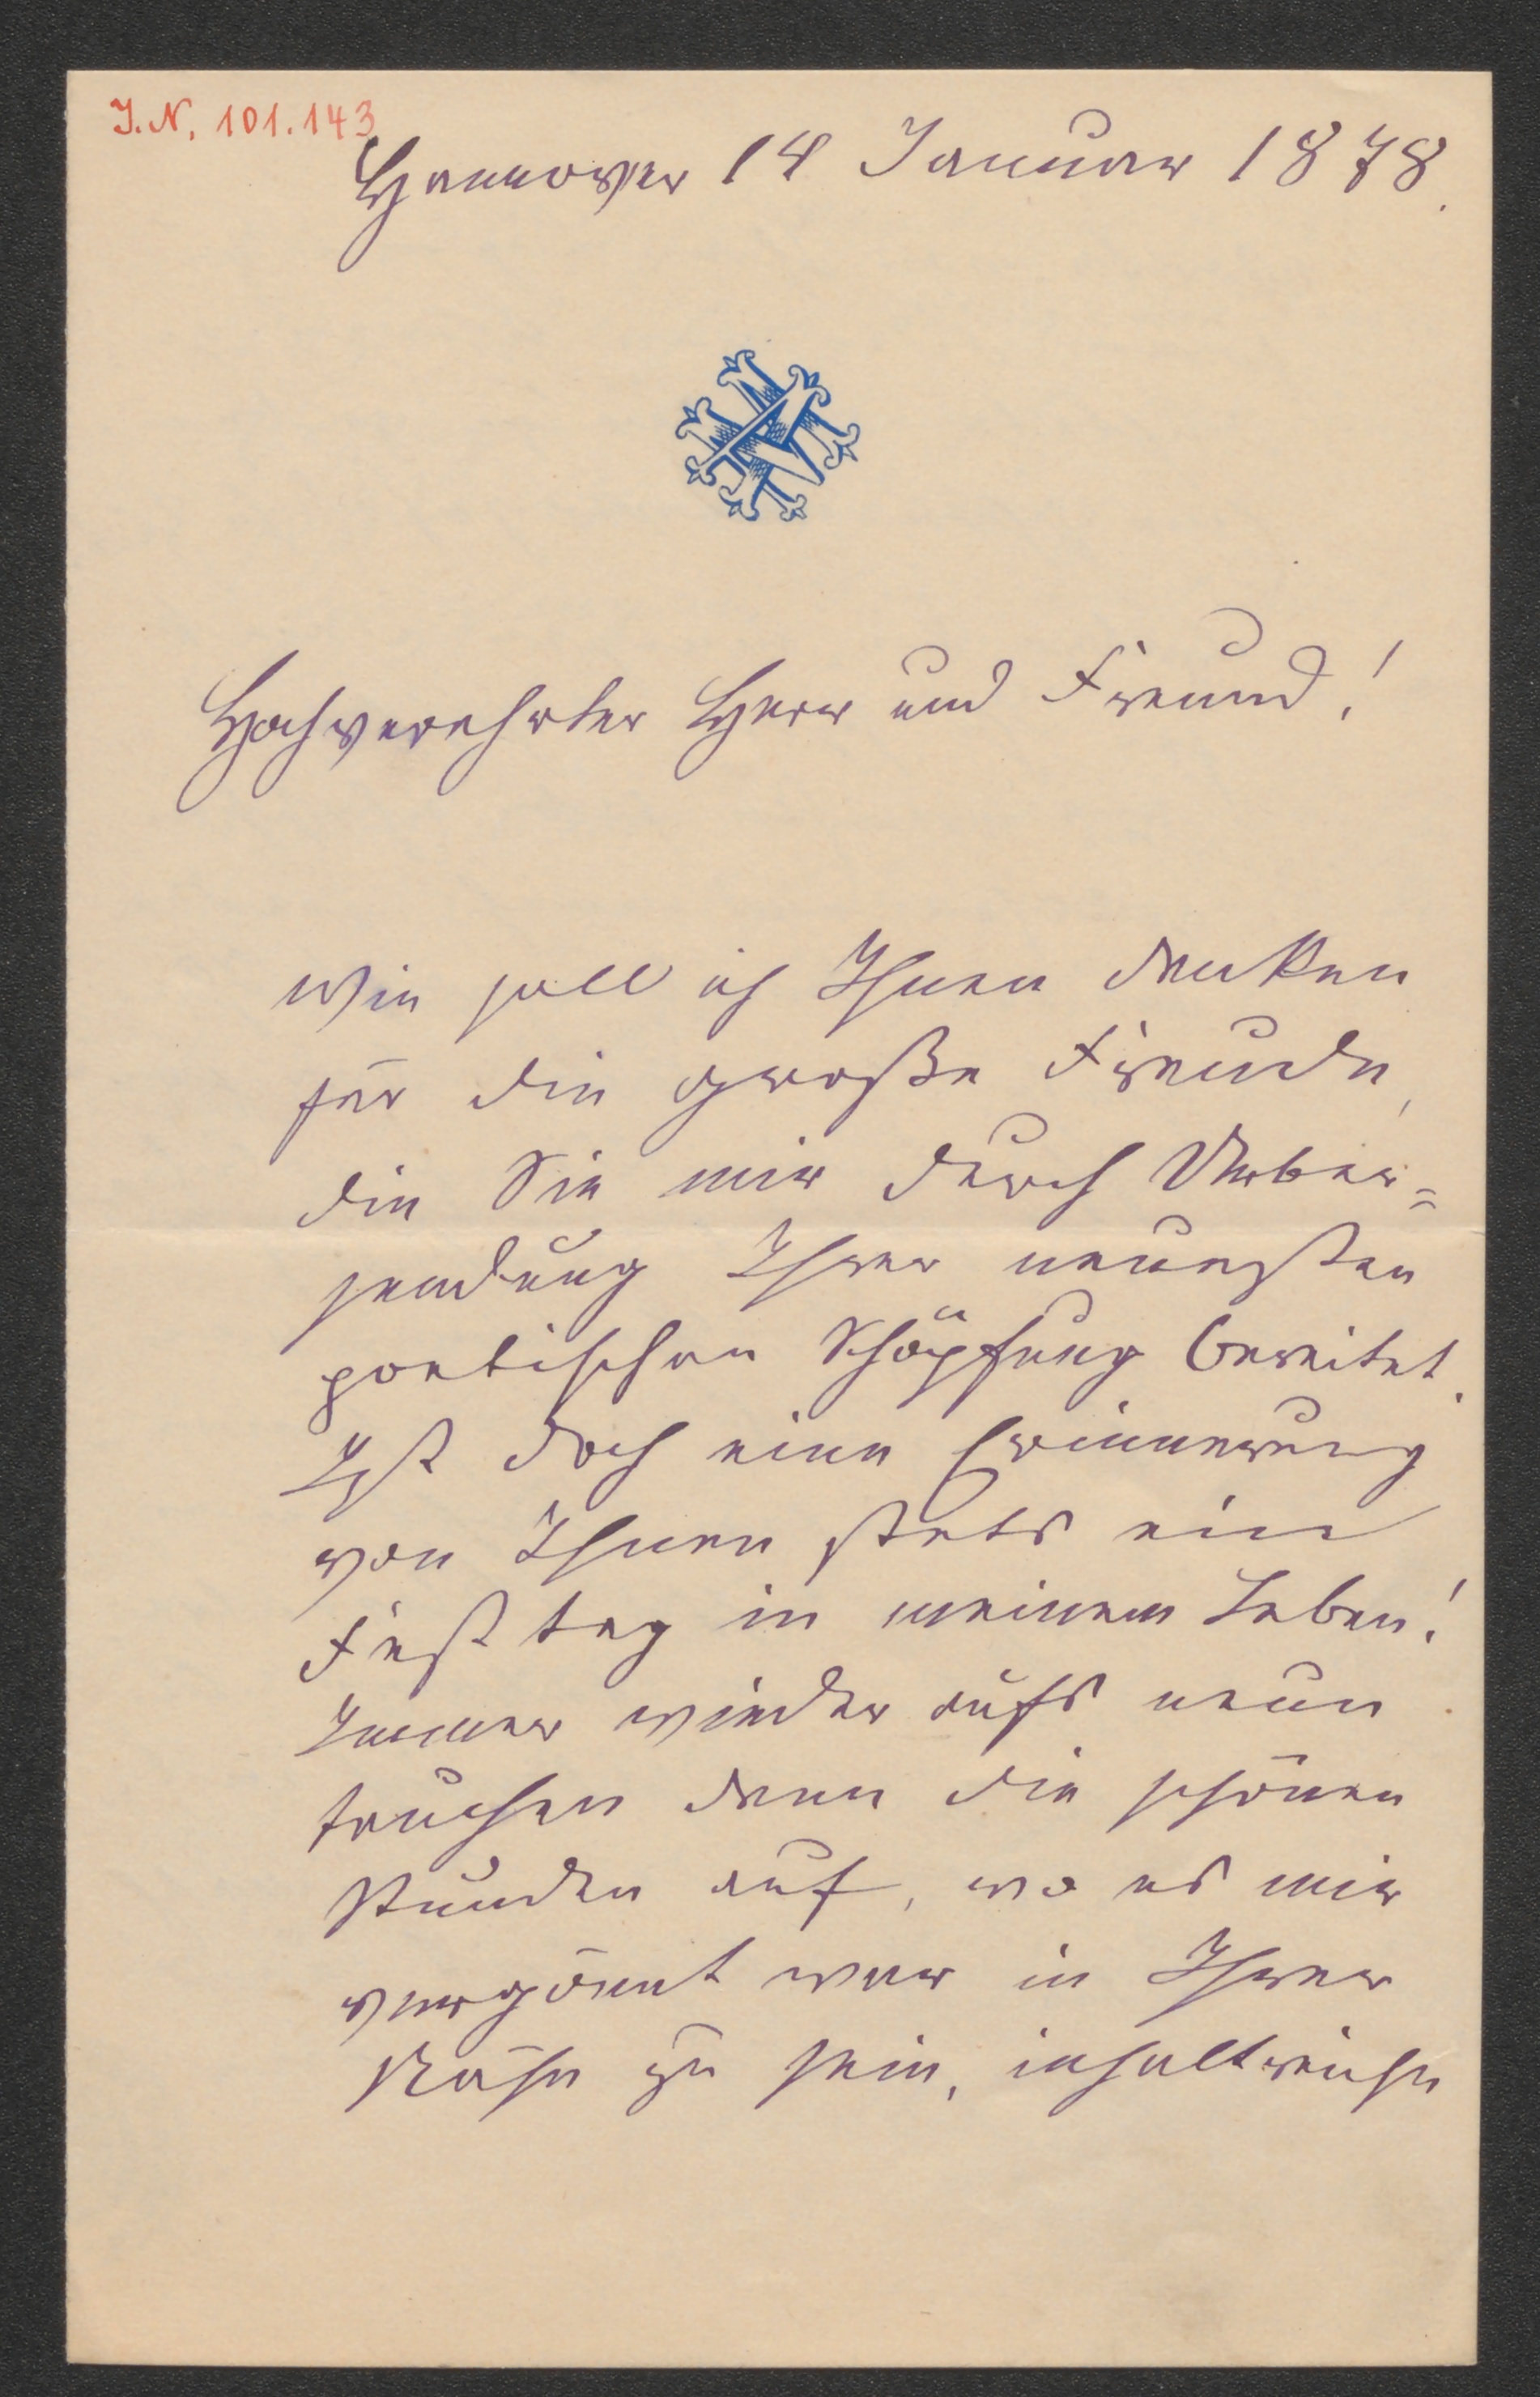 J. N. 101.143
Hannover 14 Januar 1878.
Hochverehrter Herr und Freund!
Wie soll ich Ihnen danken
für die große Freude,
die Sie mir durch Ueber=
sendung Ihrer neuesten
poetischen Schöpfung bereitet.
Ist doch eine Erinnerung
von Ihnen stets ein
Festtag in meinem Leben!
Immer wieder aufs neue
tauchen dann die schönen
Stunden auf, wo es mir
vergönnt war in Ihrer
Nähe zu sein, inhaltreiche